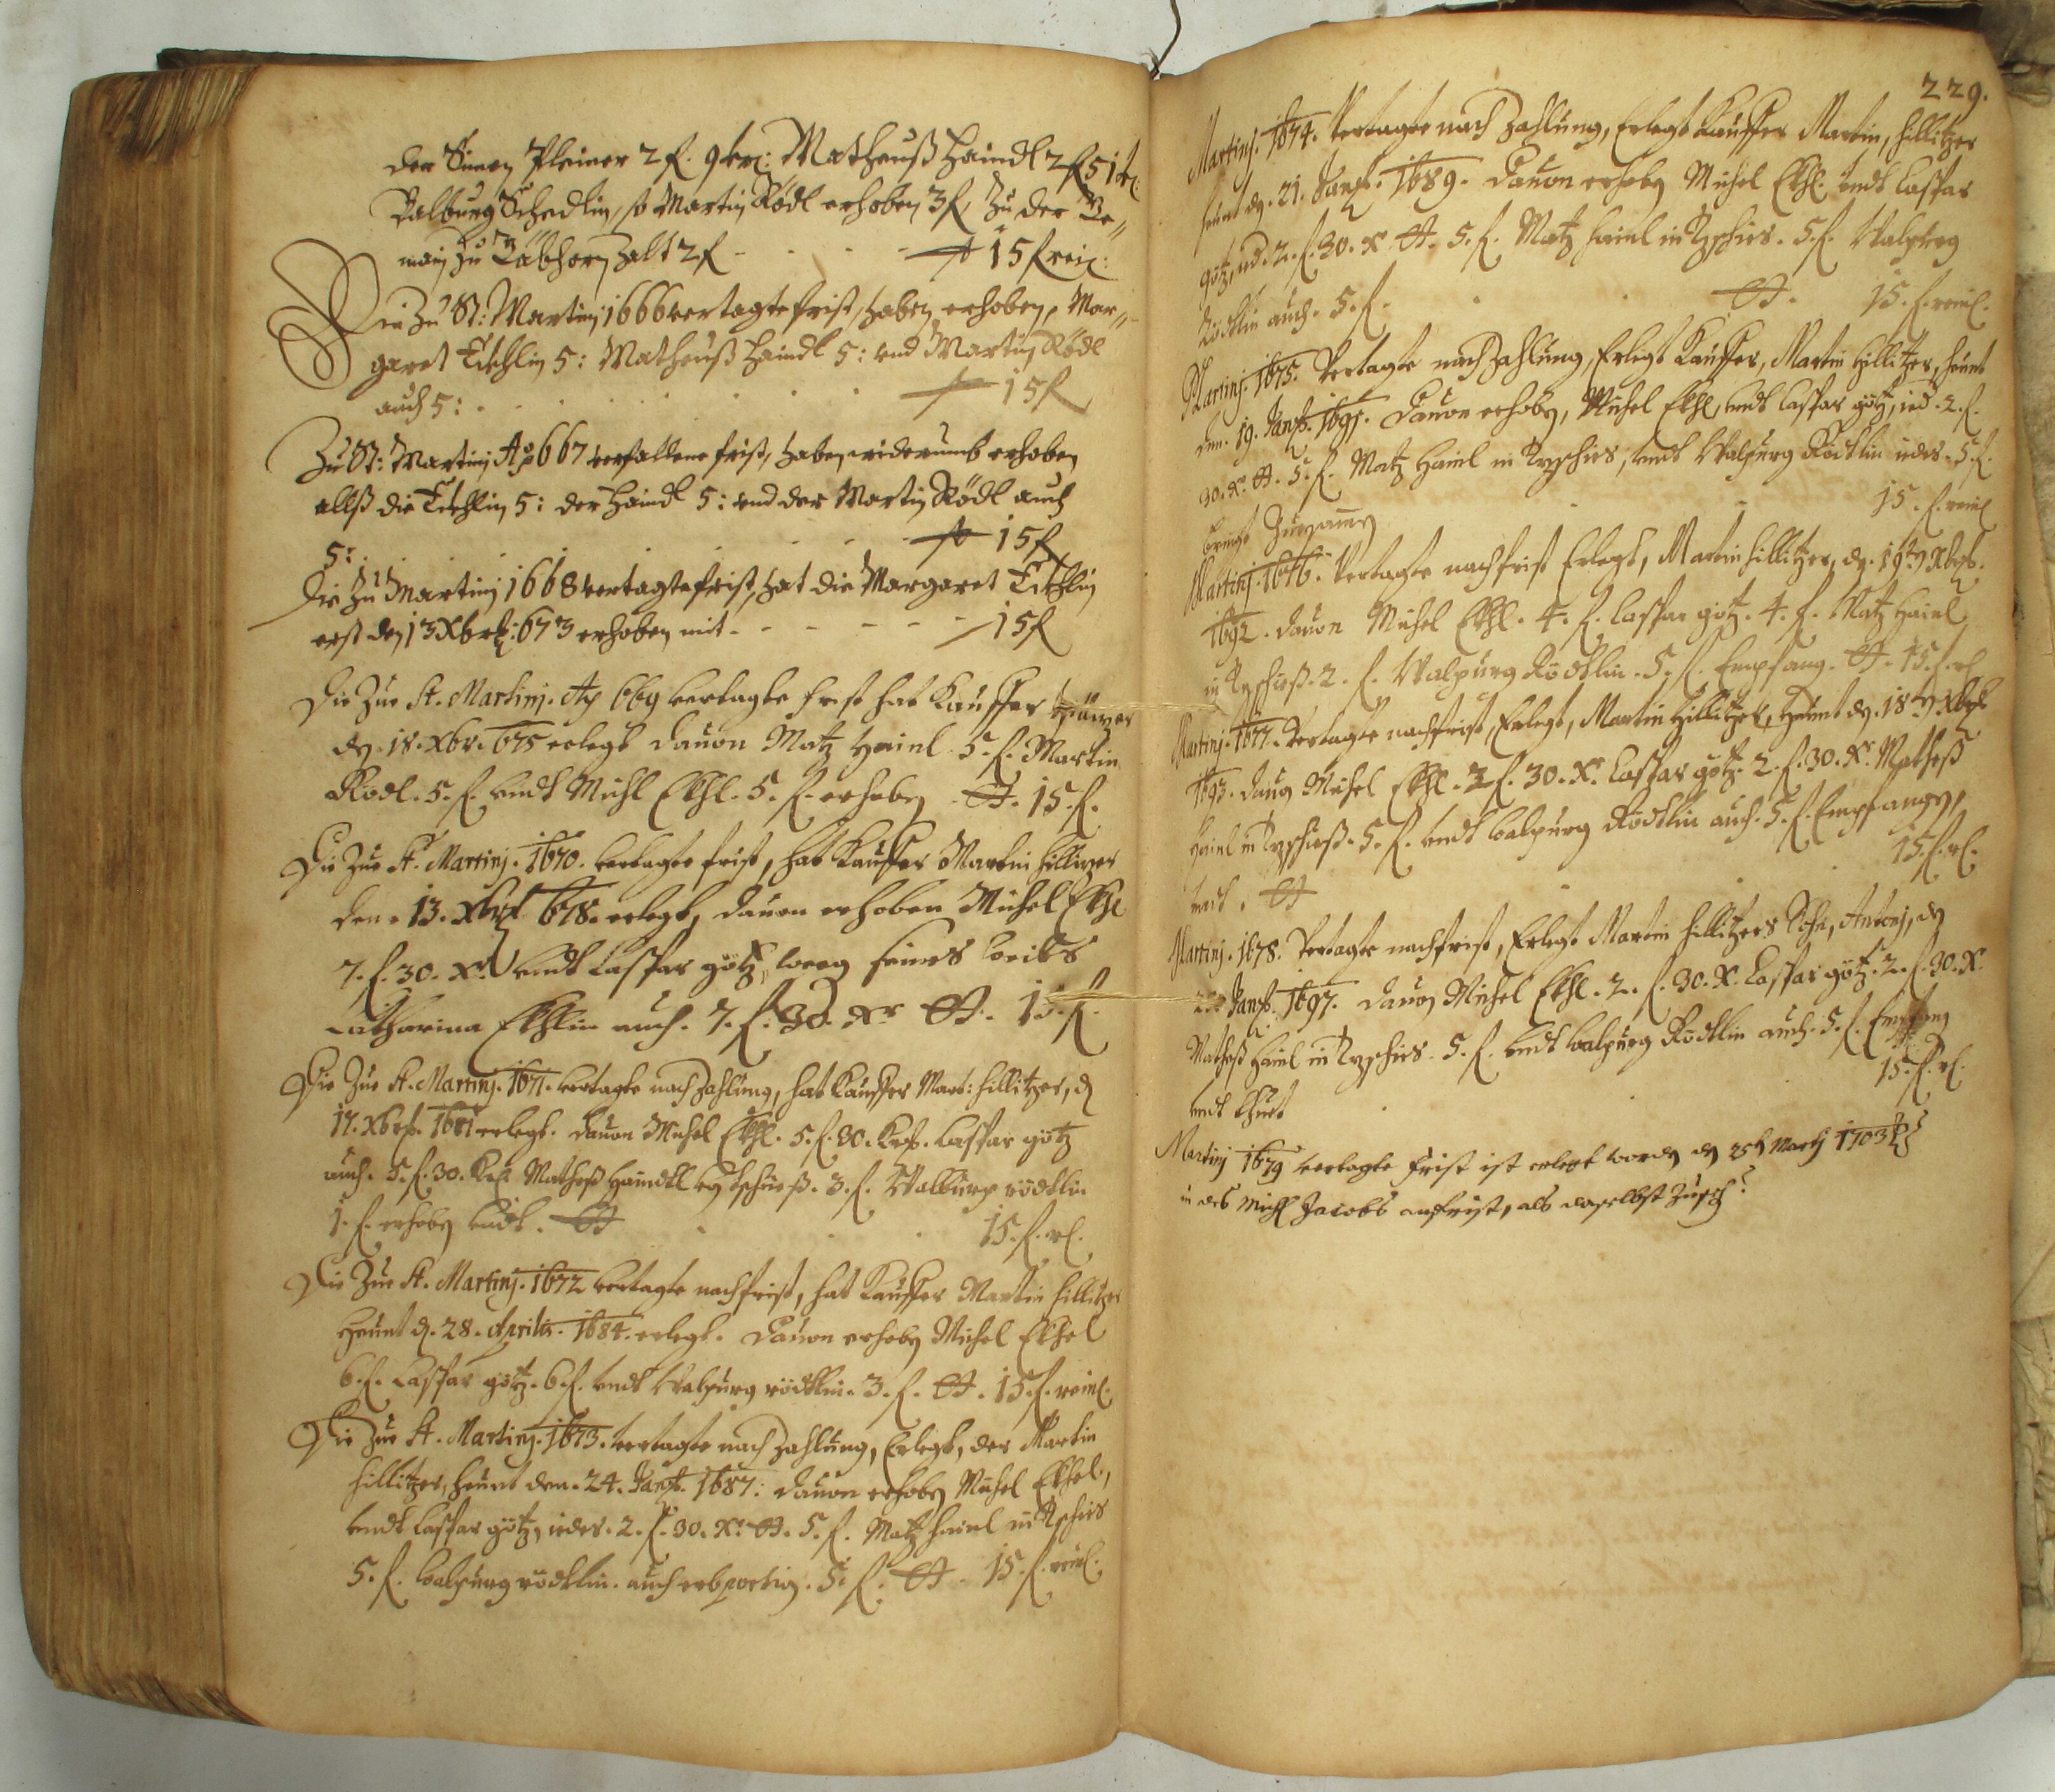 der Simon Pleiner 2 f. 9 kr: Matheuß Haindl 2 f 51 kr:
Walburg Schedlin, so Martin Rödl erhoben 3 f, Zu der Ge„
main zu zalt 2 f - - - - 15 f rein:
Die Zu St: Martinj 1666 vertagte frist, haben erhoben, Mar„
garet 5: Matheuß Haindl 5: vnd Martin Rödl
auch 5: - - - - 15 f
Zu St: Martinj Ao 667 verfallene frist, haben widerumb erhoben
allß die 5: der Haindl 5: vnd der Martin Rödl auch
5: - - - - 15 f
Die Zu Martinj 1668 vertagte frist, hat die Margaret
erst den 13 Xbris: 673 erhoben mit - - - - 15 f
Die Zue St. Martinj. Ao 669 vertagte frist hat Kauffer
dn. 18. Xbr. 675 erlegt dauon Matz Hainl 5. f. Martin
Rödl. 5. f. vndt Michl Ekhl. 5. f. erhoben 15. f.
Die Zue St. Martinj. 1670. vertagte frist, hat Kauffer Martin Hillitzer
den. 13. Xbris 678. erlegt, dauon erhoben Michel Ekhl
7. f. 30. Xr. vndt Casspar götz, weeg seines weibs
Catharina Ekhlin auch. 7. f. 30. Xr 15. f.
Die Zue St. Martinj. 1671. vertagte nach Zahlung, hat Kauffer Mart: Hillitzer, d
17. Xbris. 1681 erlegt. dauon Michel Ekhl. 5. f. 30. Casspar götz
auch. 5. f. 30. Matheß Haindl 3. f. Walburg rödtlin
1. f. erhoben vndt. 15. f. rl.
Die Zue St. Martinj. 1672 vertagte nachfrist, hat Kauffer Martin Hillitzer
Heunt d. 28. Aprilis. 1684. erlegt. Dauon erhoben Michel Ekhel
6. f. Casspar götz. 6. f. vndt Walpurg rödtlin. 3. f. 15. f. reinl.
Die Zue St. Martinj. 1673. vertagte nach Zahlung, Erlegt, der Martin
Hillitzer, heunt den. 24. Janr. 1687: dauon erhoben Michel Ekhel,
vndt Casspar götz, ieder. 2. f. 30. Xr. 5. f. Matz Hainl in
5. f. Walpurg rödtlin. auch erbportion. 5. f. 15. f. reinl.
229.
Martinj. 1674. Vertagte nach Zahlung, Erlegt Kauffer Martin, Hillitzer
heunt dn. 21. Janr. 1689. Dauon erhoben Michel Ekhl. vndt Casspar
götz, ied. 2. f. 30. x 5. f. Matz Hainl in 5. f. Walpurg
Rödtlin auch. 5. f. 15. f. reinl.
Martinj. 1675. Vertagte nach Zahlung, Erlegt Kauffer, Martin Hillitzer, heunt
den. 19. Janr. 1691. Dauon erhoben, Michel Ekhl, vndt Casspar götz, ied. 2. f.
30. Xr. 5. f. Matz Hainl in vndt Walpurg Rödtlin iedes 5. f.
bringt Zusamen 15. f. reinl
Martinj. 1676. Vertagte nachfrist Erlegt, Martin Hillitzer, dn. 19 Xbris.
1692. dauon Michel Ekhl. 4. f. Casspar götz. 4. f. Matz Hainl
in 2. f. Walpurg Rödtlin. 5. f. Empfang. 15. f. rl
Martinj. 1677. Vertagte nachfrist, Erlegt, Martin Hillitzer, Heunt dn. 18 Xbris
1693. dauon Michel Ekhl. 2 f. 30. Xr Casspar götz. 2. f. 30. Xr. Matheß
Hainl in 5. f. vndt Walpurg Rödtlin auch. 5. f. Empfangen,
vndt. 15. f. rl.
Martinj. 1678. Vertagte nachfrist, Erlegt Martin Hillitzers Sohn, Antonj, dn
Janr. 1697. dauon Michel Ekhl. 2. f. 30. X. Casspar götz. 2. f. 30. X.
Matheß Hainl in 5. f. vndt Walpurg Rödtlin auch. 5. f. Empfang
vndt 15. f. rl.
Martinj 1679 vertagte frist ist erlegt worden dn 25t Martj 1703
in des Michl Jacobs anfrist, als daselbst